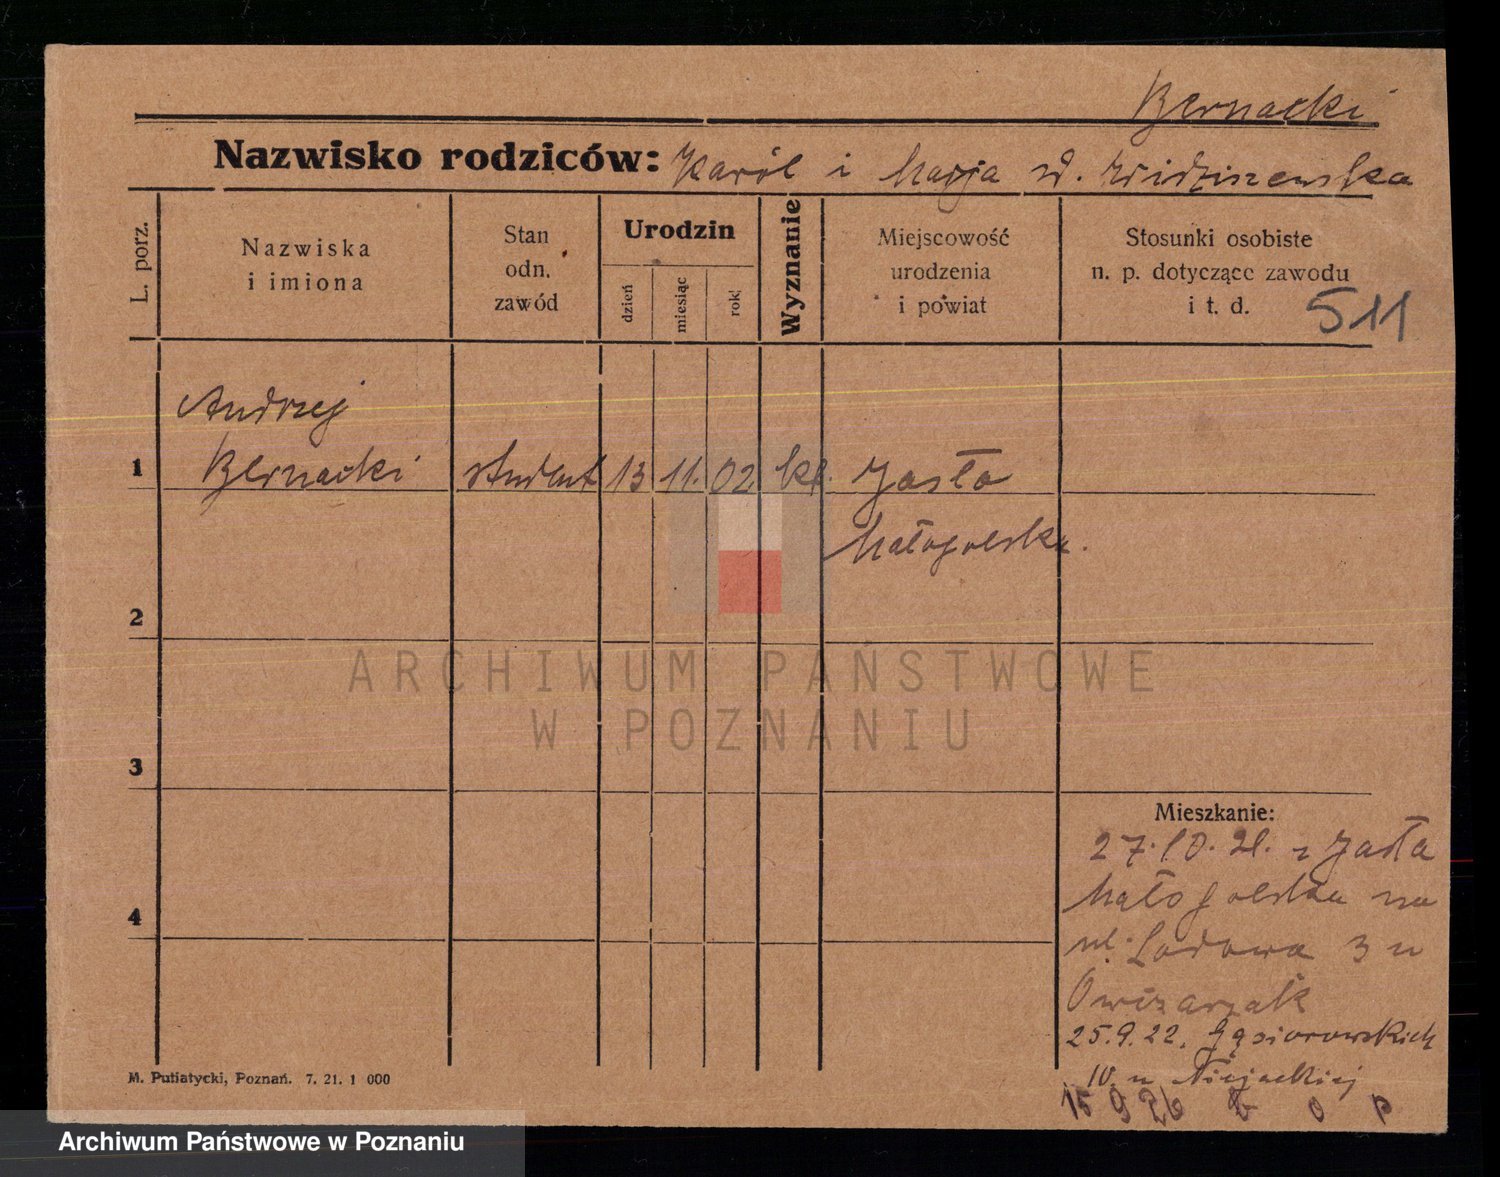 Bernacki
Nazwisko rodziców: Karól i Marja
L. porz.
Nazwiska
i imiona
Stan
odn.
zawód
Urodzin
dzień
miesiąc
rok
Wyznanie
Miejscowość
urodzenia
i powiat
Stosunki osobiste
n. p. dotyczące zawodu
i t. d.
511
Andrzej
1 Bernacki student 13 11. 02 kł. Jasło
Małopolska.
2
ARCHIWUM PAŃSTWOWE
W POZNANIU
3
Mieszkanie:
27.10.21. z Jasła
Małopolska na
4
ul. Lodowa 3 u
Owczarzak
25.9.22. Gąsiorowskich
10. u
15 9 26
M. Putiatycki, Poznań. 7. 21. 1 000
Archiwum Państwowe w Poznaniu